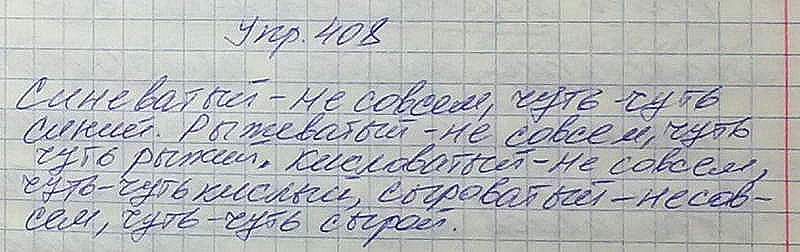 Упр. 408
Синеватый - не совсем, чуть-чуть
синий. Рыжеватый - не совсем, чуть
чуть рыжий. Кисловатый - не совсем,
чуть-чуть кислый, сыроватый - не сов-
сем, чуть-чуть сырой.